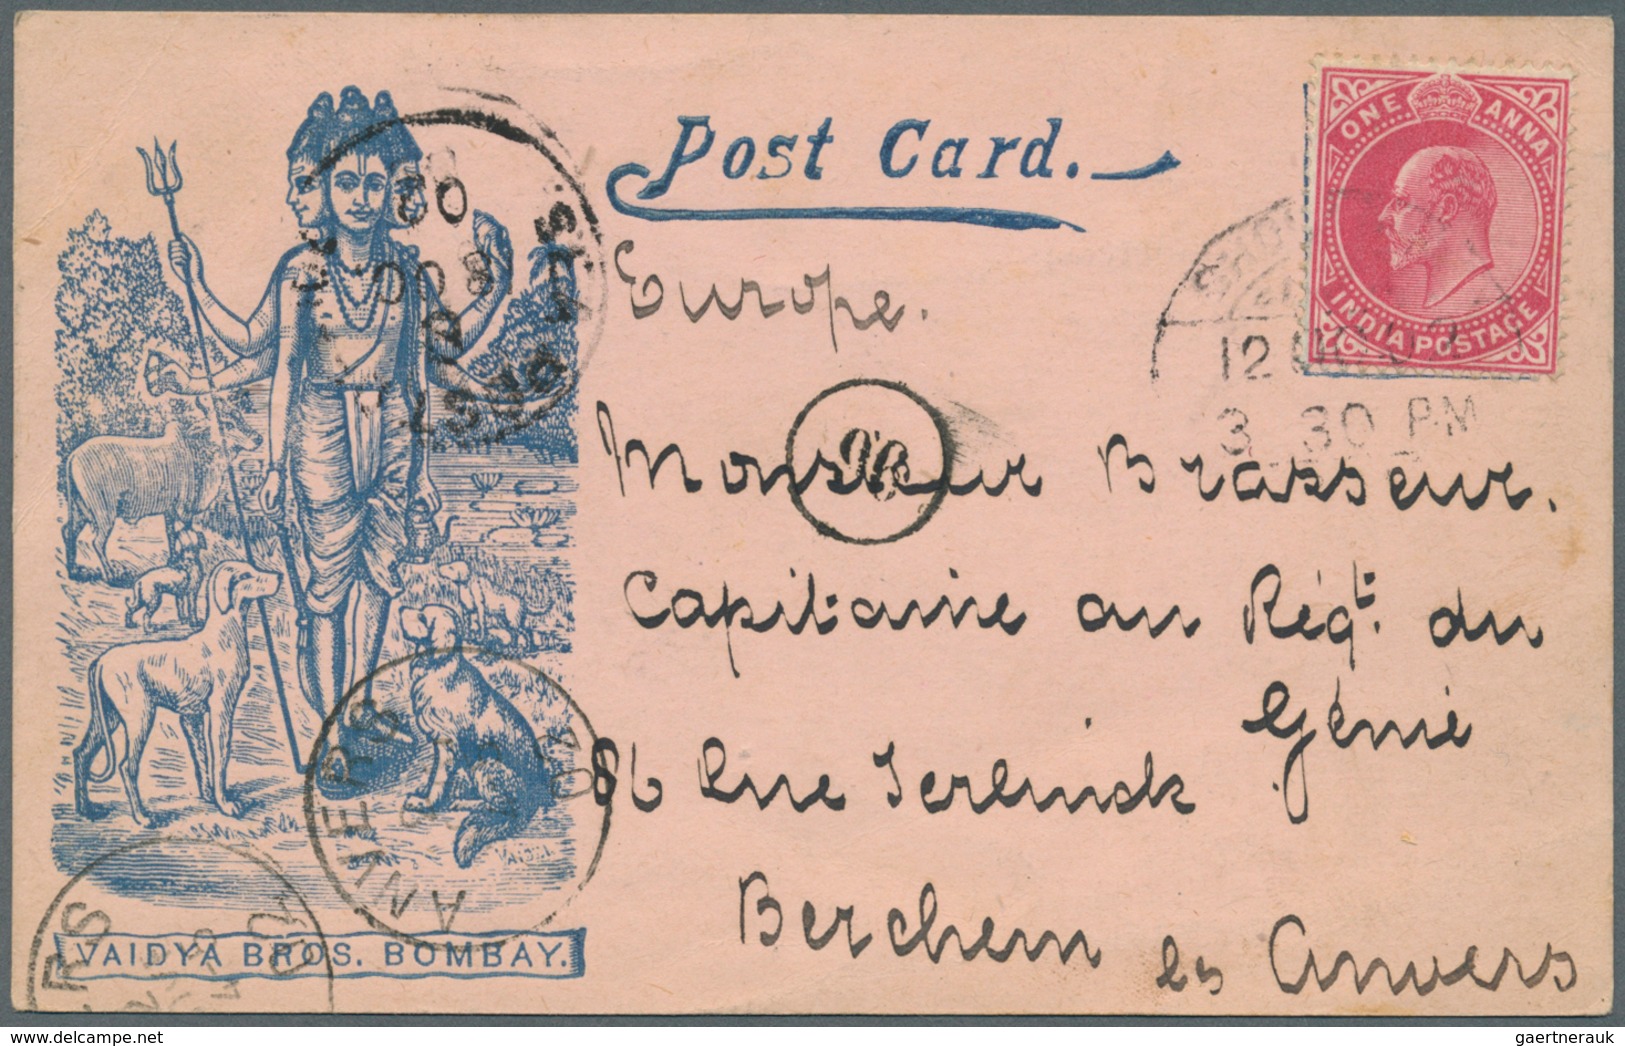 Post Card.
ONE ANNA
INDIA POSTAGE
Europe.
12
3 30 PM
Monsieur Brasseur.
Capitaine au Régt. du
Génie
86 Rue Terlinck
Berchem les Anvers
ANVERS
VAIDYA BROS. BOMBAY.
gaertnerauk @ delcampe.net